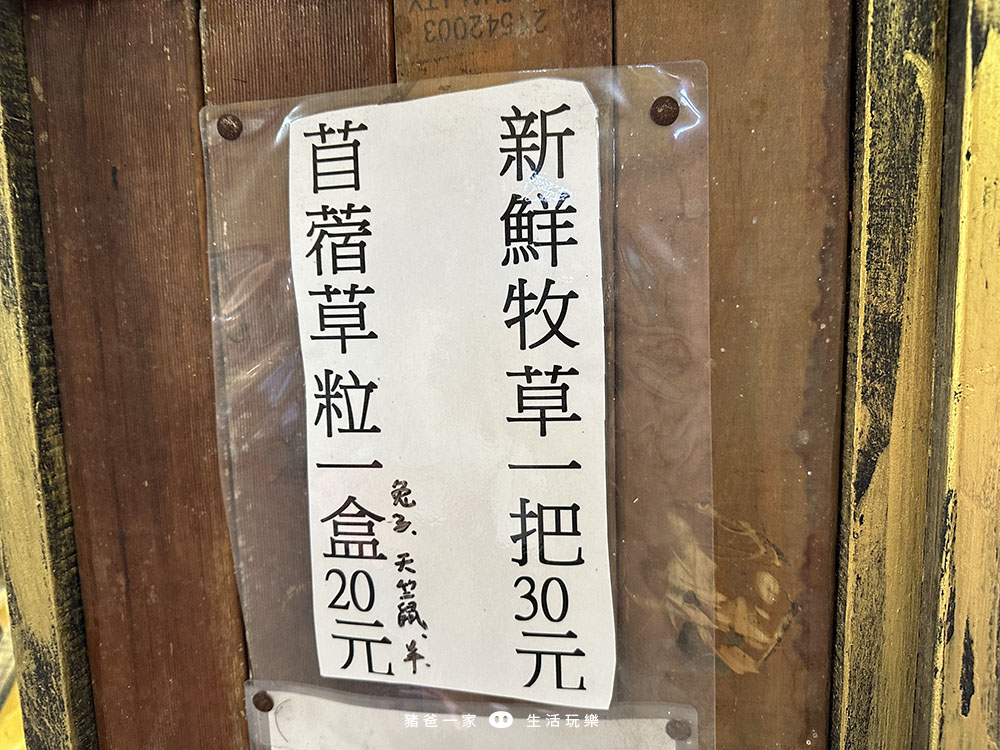 新鮮牧草一把30元
苜蓿草粒一盒20元
兔子、天竺鼠、羊、
21542003
豬爸一家 生活玩樂